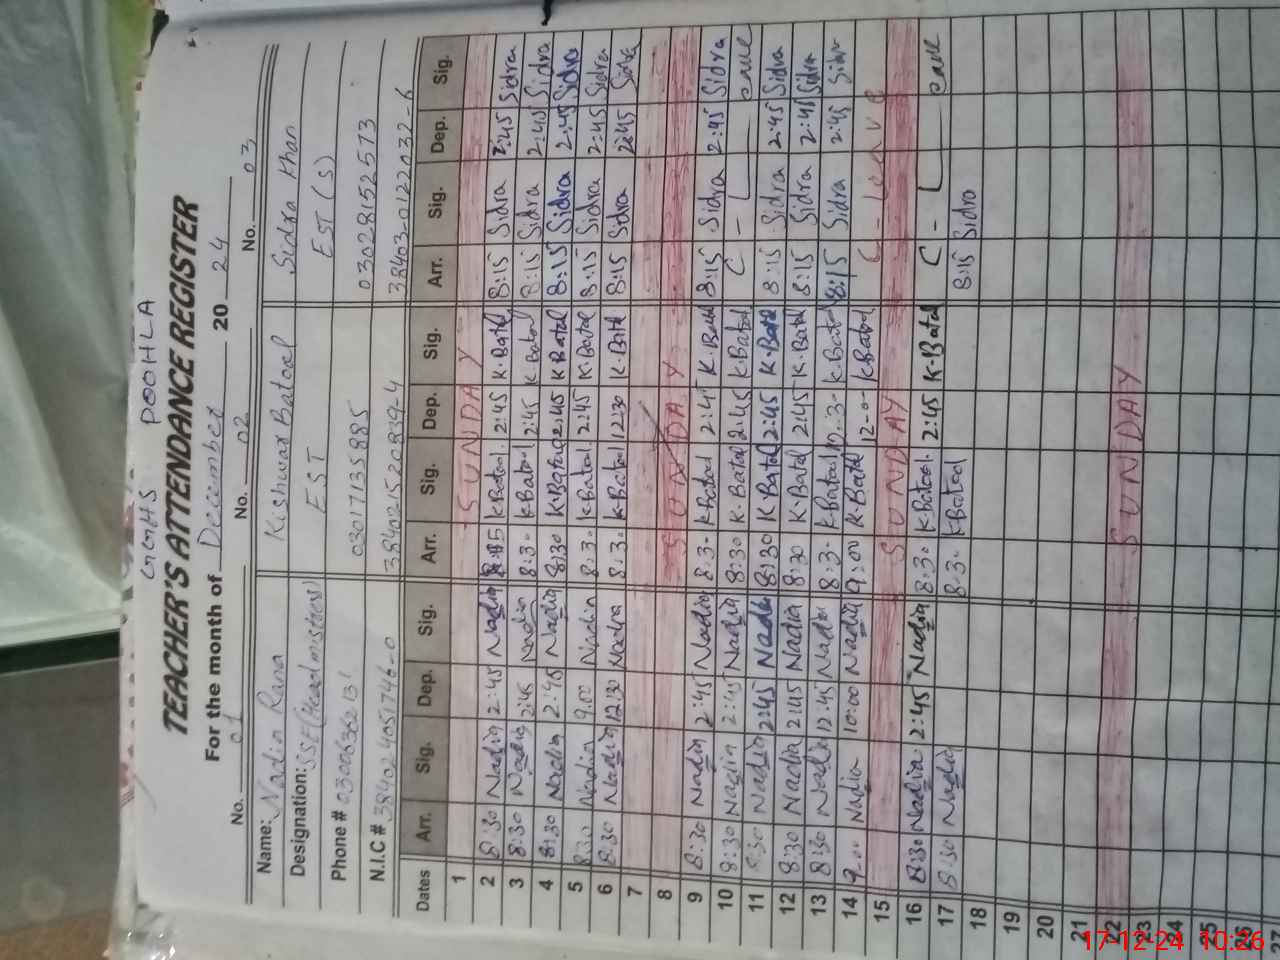 GGHS POOHLA
TEACHER'S ATTENDANCE REGISTER
For the month of December 2024
No. 01 No. 02 No. 03
Name: Nadia Rana Kishwar Batool Sidra Khan
Designation: SSE (Headmistress) EST EST (S)
Phone # 03017135885 03028152573
N.I.C # 38402-4057746-0 38403-0122032-6
Dates Arr. Sig. Dep. Sig. Arr. Sig. Dep. Sig. Arr. Sig. Dep. Sig.
1 SUNDAY
2 8:30 Nadia 2:45 Nadia K.Batool 2:45 K.Batol 8:15 Sidra 2:45 Sidra
3 8:30 Nadia 2:45 Nadia 8:3- K.Batol 2:45 K.Batol 8:15 Sidra 2:45 Sidra
4 8:30 Nadia 2:45 Nadia 8:30 K.Batol 2:45 K.Batol 8:15 Sidra 2:45 Sidra
5 8:30 Nadia 9:00 Nadia 8:3- K.Batol 2:45 K.Batol 8:15 Sidra 2:45 Sidra
6 8:30 Nadia 12:30 Nadia 8:3- K.Batol 12:30 K.Batl 8:15 Sidra 2:45 Sidra
7
8 SUNDAY
9 8:30 Nadia 2:45 Nadia 8:3- K.Batool 2:45 K.Batol 8:15 Sidra 2:45 Sidra
10 8:30 Nadia 2:45 Nadia 8:30 K.Batol 2:45 K.Batol C - Leave
11 8:30 Nadia 2:45 Nadia 8:30 K.Batol 2:45 K.Batol 8:15 Sidra 2:45 Sidra
12 8:30 Nadia 2:45 Nadia 8:30 K.Batol 2:45 K.Batol 8:15 Sidra 2:45 Sidra
13 8:30 Nadia 12:45 Nadia 8:3- K.Batool K.Batol 8:15 Sidra 2:45 Sidra
14 9:00 Nadia 10:00 Nadia 9:00 K.Batol 12-0- K.Batol C - Leave
15 SUNDAY
16 8:30 Nadia 2:45 Nadia 8:30 K.Batool 2:45 K.Batol C - Leave
17 8:30 Nadia 8:3- K.Batool 8:15 Sidra
18
19
20
21
22 SUNDAY
23
24
25
26
27
17-12-24 10:26